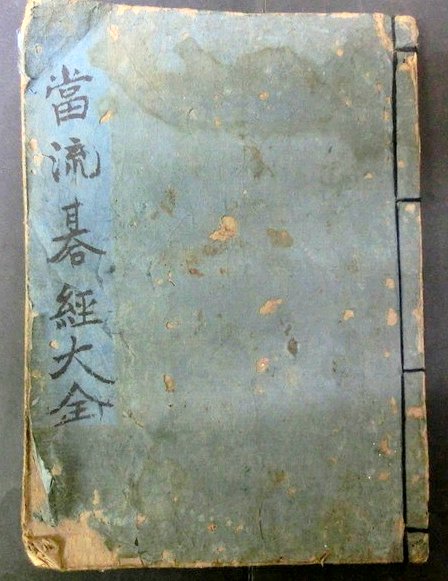 當流碁經大全